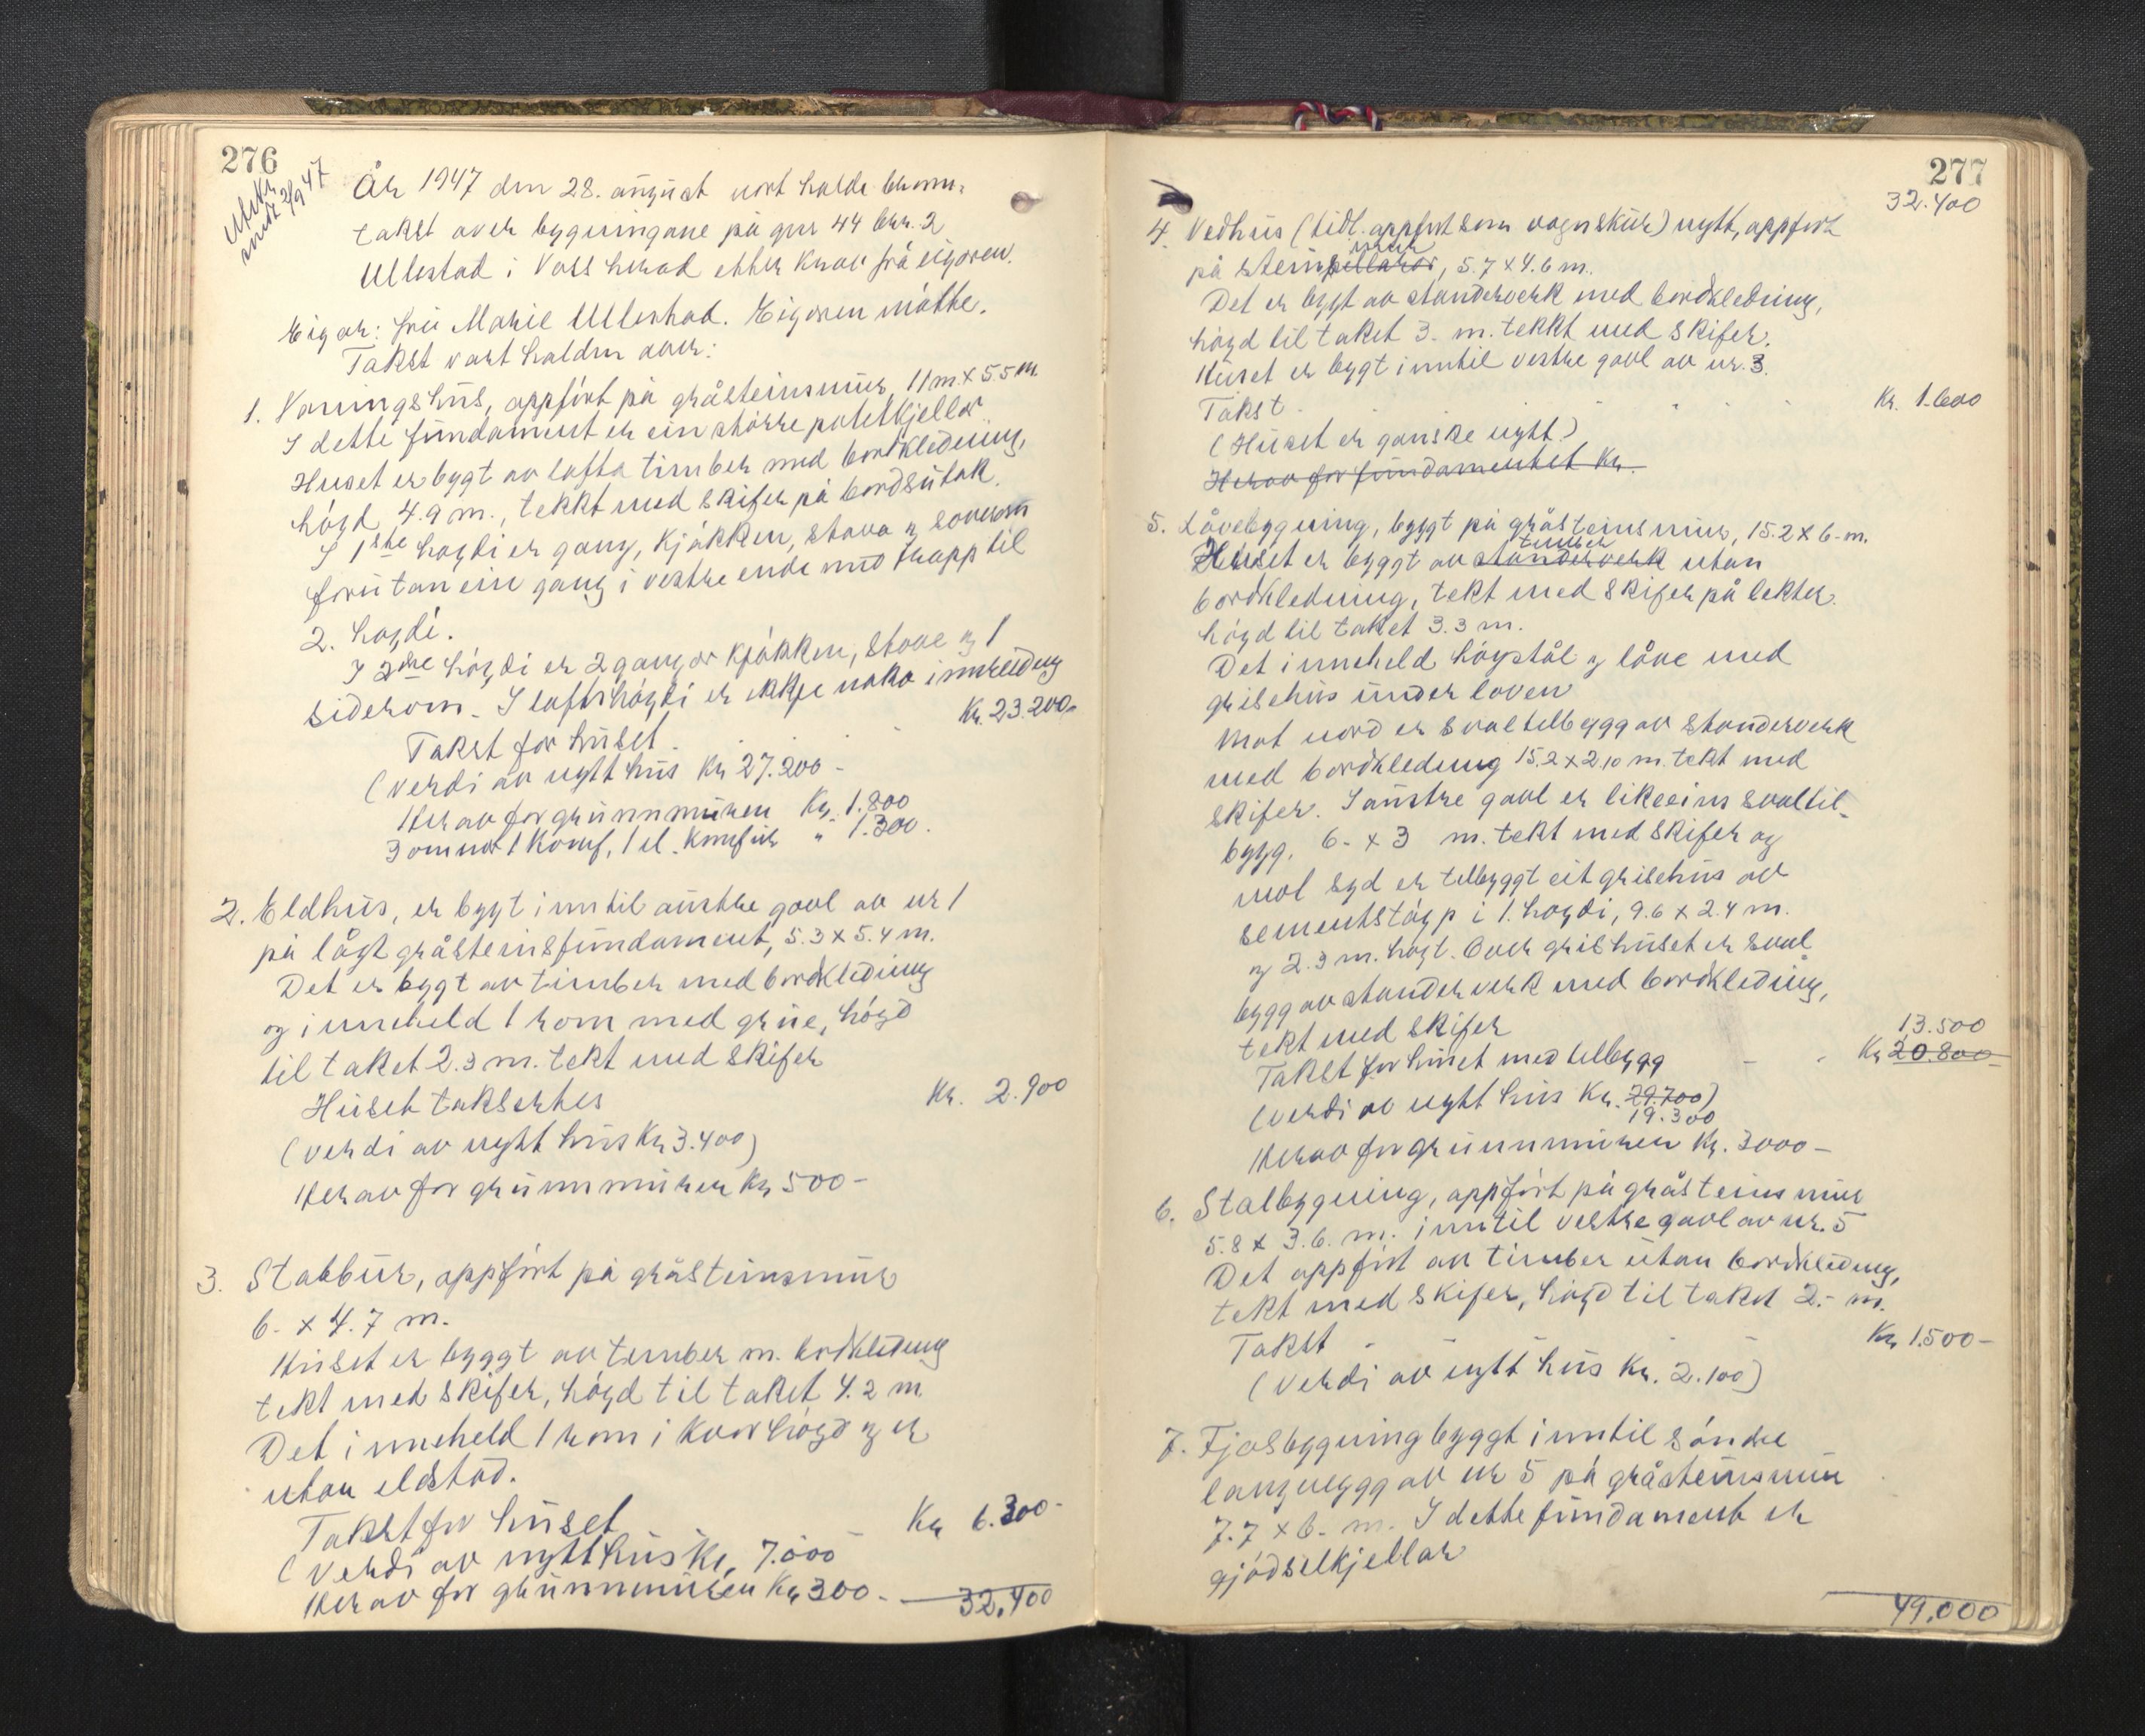 276
Utskr.
sendt 2/9 47
År 1947 den 28. august vart halde brann-
takst over bygningane på gnr 44 bnr. 2
Ullestad i Voss herad etter krav frå eigaren.
Eigar: fru Marie Ullestad. Eigaren møtte.
Takst vart halden over:
1. Vaningshus, oppført på gråsteinsmur, 11 m. x 5.5 m.
I dette fundament er ein større potetkjellar
Huset er bygt av lafta timber med bordkledning,
høgd 4.9 m., tekkt med skifer på bordsutak.
I 1ste høgdi er gang, kjøkken, stova og soverom
forutan ein gang i vestre ende med trapp til
2. høgdi.
I 2dre høgdi er 2 gangar kjøkken, stove og 1
siderom. I loftshøgdi er ikkje noko innreiding
Takst for huset - - - Kr. 23.200,-
(Verdi av nytt hus Kr 27.200 -
Herav for grunnmuren Kr. 1.800
3 omnar 1 komf, 1 el. komfur " 1.300.
2. Eldhus, er bygt inntil austre gavl av nr 1
på lågt gråsteinsfundament, 5.3 x 5.4 m.
Det er bygt av timber med bordkledning
og inneheld 1 rom med grue, høgd
til taket 2.3 m. tekt med skifer
Huset taksertes Kr. 2.900
(Verdi av nytt hus Kr 3.400)
Herav for grunnmuren Kr 500 -
3. Stabbur, oppført på gråsteinsmur
6. - x 4.7 m.
Huset er byggt av timber m. bordkledning
tekt med skifer, høgd til taket 4.2 m
Det inneheld 1 rom i kvar høgd og er
utan eldstad.
Takst for huset - Kr 6.300 -
(Verdi av nytt hus Kr. 7.000
Herav for grunnmuren Kr 300. - 32.400
277
32.400
4. Vedhus (tidl. oppført som vognskur) nytt, oppført
mur
på steinpillarar, 5.7 x 4.6 m.
Det er bygt av standerverk med bordkledning,
høgd til taket 3. - m. tekkt med skifer.
Huset er bygt inntil vestre gavl av nr. 3.
Takst - - - - Kr. 1.600
(Huset er ganske nytt)
Herav for fundamentet Kr. -
5. Låvebygning, byggt på gråsteinsmur, 15.2 x 6 - m.
timber
Huset er byggt av standerverk utan
bordkledning, tekt med skifer på lekter.
høgd til taket 3.3 m.
Det inneheld høystål og låve med
grisehus under loven
Mot nord er sval tilbygg av standerverk
med bordkledning 15.2 x 2.10 m. tekt med
skifer. I austre gavl er likeeins svaltil-
bygg, 6. - x 3 m. tekt med skifer og
mot syd er tilbyggt eit grisehus av
sementstøyp i 1. høgdi, 9.6 x 2.4 m.
og 2.3 m. høgt. Over grishuset er sval
bygg av standerverk med bordkledning,
tekt med skifer
13.500
Takst for huset med tilbygg - - Kr 20.800 -
(Verdi av nytt hus Kr. 29.700)
19.300
Herav for grunnmuren Kr. 3000 -
6. Stalbygning, oppført på gråsteinsmur
5.8 x 3.6. m. inntil vestre gavl av nr. 5
Det oppført av timber utan bordkledning,
tekt med skifer, høgd til taket 2. - m.
Takst - - - - - Kr 1.500 -
(Verdi av nytt hus Kr. 2.100)
7. Fjosbygning byggt inntil søndre
langvegg av nr 5 på gråsteinsmur
7.7 x 6. - m. I dette fundament er
gjødselkjellar
49.000